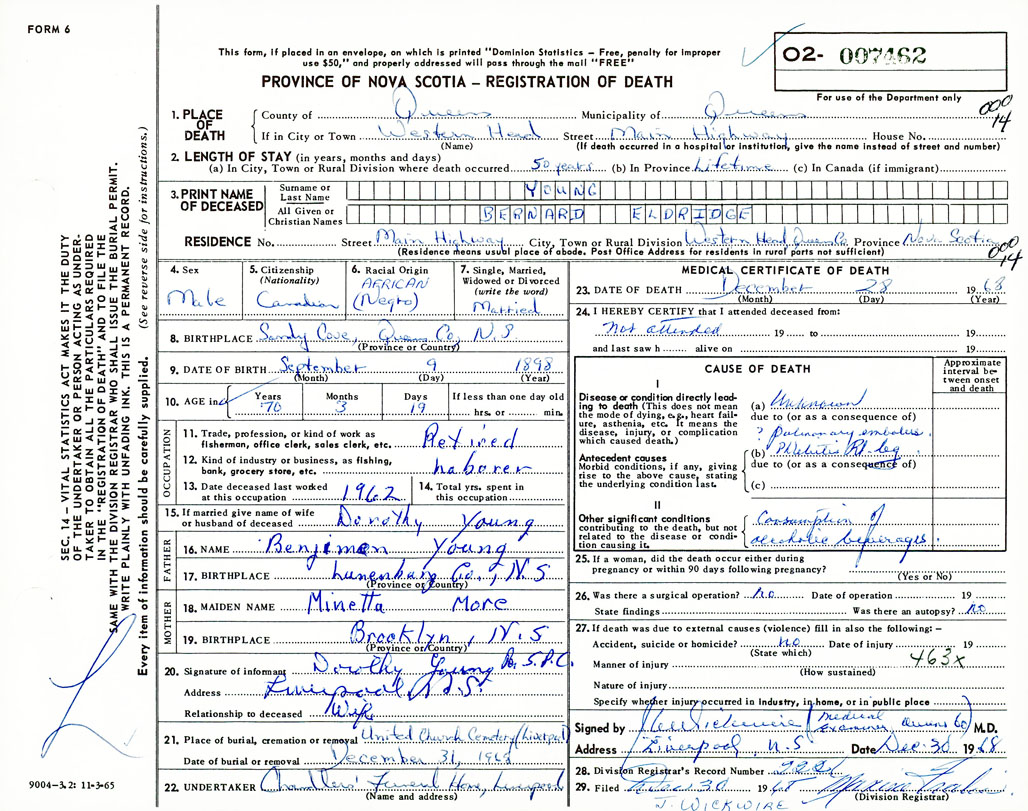 FORM 6
This form, if placed in an envelope, on which is printed "Dominion Statistics – Free, penalty for improper
use $50," and properly addressed will pass through the mail "FREE"
PROVINCE OF NOVA SCOTIA – REGISTRATION OF DEATH
02- 007462
For use of the Department only
000
14
1. PLACE OF DEATH
County of Queens Municipality of Queens
If in City or Town Western Head Street Main Highway House No.
(Name) (If death occurred in a hospital or institution, give the name instead of street and number)
2. LENGTH OF STAY (in years, months and days)
(a) In City, Town or Rural Division where death occurred 50 years (b) In Province Lifetime (c) In Canada (if immigrant)
3. PRINT NAME OF DECEASED
Surname or Last Name YOUNG
All Given or Christian Names BERNARD ELDRIDGE
RESIDENCE No. Street Main Highway City, Town or Rural Division Western Head Queen Co. Province Nova Scotia
(Residence means usual place of abode. Post Office Address for residents in rural parts not sufficient)
000
14
4. Sex Male
5. Citizenship (Nationality) Canadian
6. Racial Origin AFRICAN (Negro)
7. Single, Married, Widowed or Divorced (write the word) Married
8. BIRTHPLACE Sandy Cove, Queens Co, N.S
(Province or Country)
9. DATE OF BIRTH September 9 1898
(Month) (Day) (Year)
10. AGE in Years 70 Months 3 Days 19 If less than one day old hrs. or min.
OCCUPATION
11. Trade, profession, or kind of work as fisherman, office clerk, sales clerk, etc. Retired
12. Kind of industry or business, as fishing, bank, grocery store, etc. Laborer
13. Date deceased last worked at this occupation 1962
14. Total yrs. spent in this occupation
15. If married give name of wife or husband of deceased Dorothy Young
FATHER
16. NAME Benjimen Young
17. BIRTHPLACE Lunenburg Co., N.S
(Province or Country)
MOTHER
18. MAIDEN NAME Minetta More
19. BIRTHPLACE Brooklyn, N.S
(Province or Country)
20. Signature of informant Dorothy Young
Address Liverpool N.S.
Relationship to deceased Wife
21. Place of burial, cremation or removal United Church Cemetery (Liverpool)
Date of burial or removal December 31, 1968
22. UNDERTAKER Chandlers' Funeral Home, Liverpool
(Name and address)
MEDICAL CERTIFICATE OF DEATH
23. DATE OF DEATH December 28 1968
(Month) (Day) (Year)
24. I HEREBY CERTIFY that I attended deceased from:
Not attended 19 to 19
and last saw h alive on 19
CAUSE OF DEATH
Approximate interval between onset and death
I
Disease or condition directly leading to death (This does not mean the mode of dying, e.g., heart failure, asthenia, etc. It means the disease, injury, or complication which caused death.)
(a) Unknown
due to (or as a consequence of)
? Pulmonary embolus.
Antecedent causes
Morbid conditions, if any, giving rise to the above cause, stating the underlying condition last.
(b) Phlebitis Rt. leg
due to (or as a consequence of)
(c)
II
Other significant conditions contributing to the death, but not related to the disease or condition causing it.
Consumption of
alcoholic beverages.
25. If a woman, did the death occur either during
pregnancy or within 90 days following pregnancy?
(Yes or No)
26. Was there a surgical operation? no Date of operation 19
State findings Was there an autopsy? no
27. If death was due to external causes (violence) fill in also the following: –
Accident, suicide or homicide? no Date of injury 19
(State which)
463x
Manner of injury
(How sustained)
Nature of injury
Specify whether injury occurred in Industry, in home, or in public place
Signed by (medical examiner Queens Co) M.D.
Address Liverpool, N.S Date Dec. 30 1968
28. Division Registrar's Record Number
29. Filed Dec 30 1968
(Division Registrar)
J. WICKWIRE
SEC. 14 – VITAL STATISTICS ACT MAKES IT THE DUTY
OF THE UNDERTAKER OR PERSON ACTING AS UNDERTAKER TO OBTAIN ALL THE PARTICULARS REQUIRED
IN THE "REGISTRATION OF DEATH" AND TO FILE THE
SAME WITH THE DIVISION REGISTRAR WHO SHALL ISSUE THE BURIAL PERMIT.
WRITE PLAINLY WITH UNFADING INK. THIS IS A PERMANENT RECORD.
Every item of information should be carefully supplied. (See reverse side for instructions.)
9004–3.2: 11-3-65